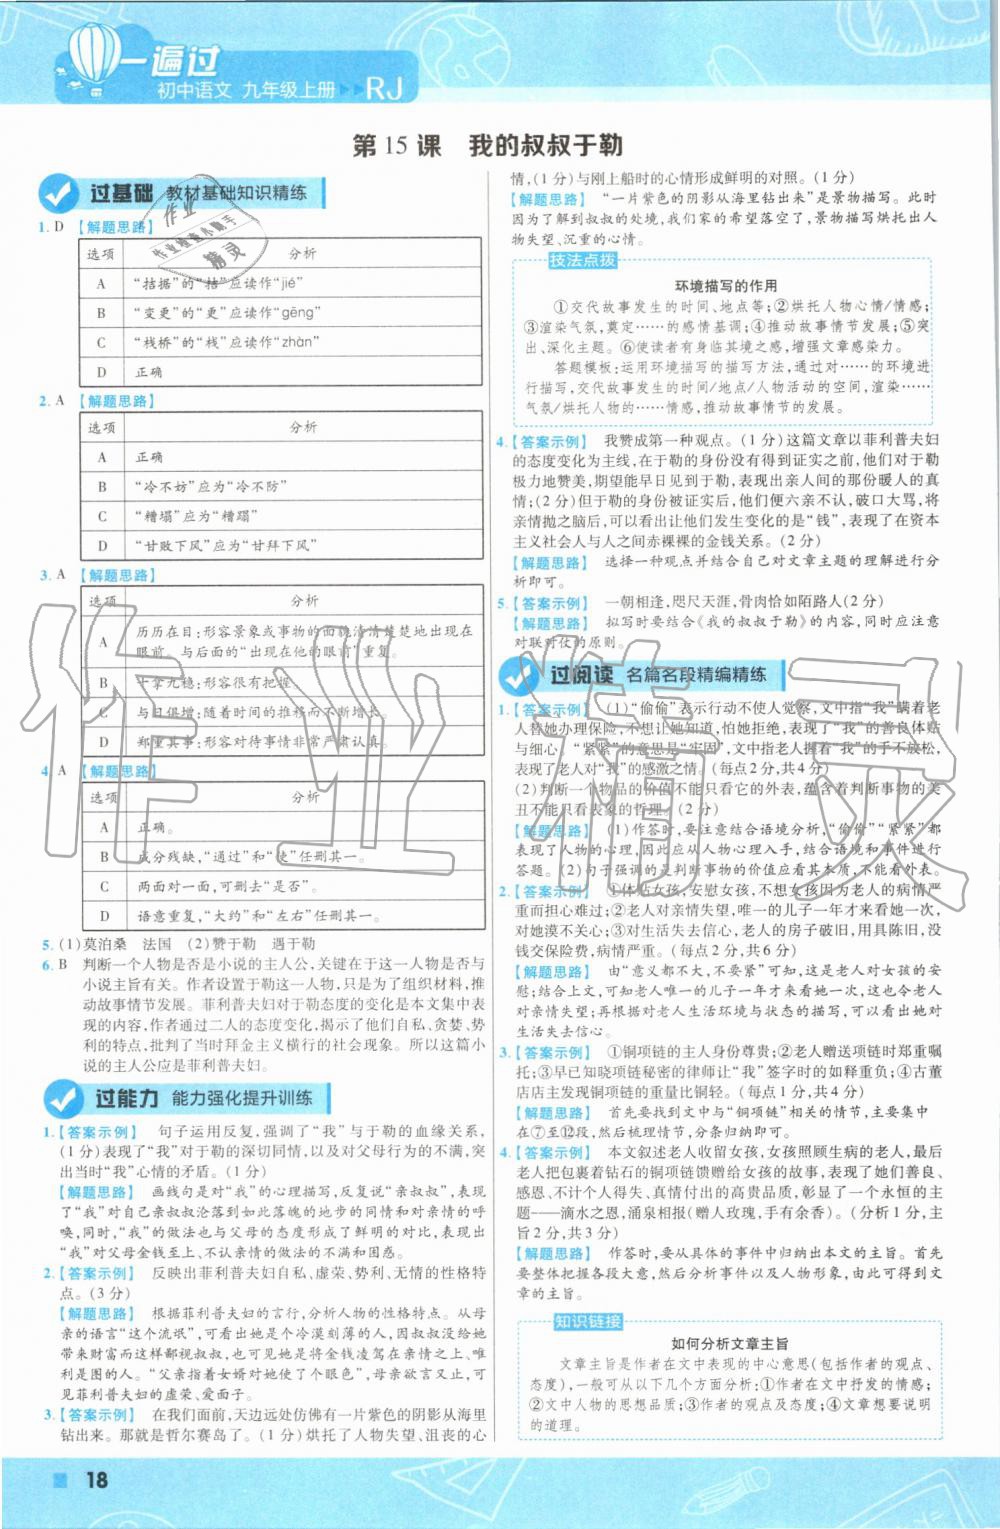 一遍过
初中语文 九年级上册 ▶▶ RJ
第 15 课 我的叔叔于勒
过基础 教材基础知识精练
1. D 【解题思路】
选项 分析
A “拮据”的“拮”应读作“jié”
B “变更”的“更”应读作“gēng”
C “栈桥”的“栈”应读作“zhàn”
D 正确
2. A 【解题思路】
选项 分析
A 正确
B “冷不妨”应为“冷不防”
C “糟塌”应为“糟蹋”
D “甘败下风”应为“甘拜下风”
3. A 【解题思路】
选项 分析
A 历历在目:形容景象或事物的面貌清清楚楚地出现在
眼前。与后面的“出现在他的眼前”重复。
B 十拿九稳:形容很有把握。
C 与日俱增:随着时间的推移而不断增长。
D 郑重其事:形容对待事情非常严肃认真。
4. A 【解题思路】
选项 分析
A 正确。
B 成分残缺,“通过”和“使”任删其一。
C 两面对一面,可删去“是否”。
D 语意重复,“大约”和“左右”任删其一。
5. (1)莫泊桑 法国 (2)赞于勒 遇于勒
6. B 判断一个人物是否是小说的主人公,关键在于这一人物是否与
小说主旨有关。作者设置于勒这一人物,只是为了组织材料,推
动故事情节发展。菲利普夫妇对于勒态度的变化是本文集中表
现的内容,作者通过二人的态度变化,揭示了他们自私、贪婪、势
利的特点,批判了当时拜金主义横行的社会现象。所以这篇小
说的主人公应是菲利普夫妇。
过能力 能力强化提升训练
1.【答案示例】 句子运用反复,强调了“我”与于勒的血缘关系,
(1分)表现了“我”对于勒的深切同情,以及对父母行为的不满,突
出当时“我”心情的矛盾。(1分)
【解题思路】 画线句是对“我”的心理描写,反复说“亲叔叔”,表现
了“我”对父亲亲兄弟沦落到如此落魄的地步的同情和对亲情的呼
唤,同时,“我”的做法也与父母的态度形成了鲜明的对比,表现出
“我”对父母金钱至上、不认亲情的做法的不满和困惑。
2.【答案示例】 反映出菲利普夫妇自私、虚荣、势利、无情的性格特
点。(3分)
【解题思路】 根据菲利普夫妇的言行,分析人物的性格特点。从母
亲的语言“这个流氓”,可以看出她是个冷漠刻薄的人,因叔叔现在
处境贫苦而这样鄙视叔叔,可以看出她将金钱凌驾在亲情之上,唯
利是图的人。“我父亲指着女婿对她使了个眼色”,母亲假装镇定可
见菲利普夫妇的虚荣、爱面子。
3.【答案示例】 在我们面前,天边远处仿佛有一片紫色的阴影从海里
钻出来。那就是哲尔赛岛了。(1分)烘托了人物失望、沮丧的心
情,(1分)与刚上船时的心情形成鲜明的对照。(1分)
【解题思路】 “一片紫色的阴影从海里钻出来”是景物描写。此时
因为了解到叔叔的处境,我们家的希望落空了,景物描写烘托出人
物失望、沉重的心情。
技法点拨
环境描写的作用
①交代故事发生的时间、地点等;②烘托人物心情/情感;
③渲染气氛,奠定……的感情基调;④推动故事情节发展;⑤突
出、深化主题。⑥使读者有身临其境之感,增强文章感染力。
答题模板:运用环境描写的描写方法,通过对……的环境进
行描写,交代故事发生的时间/地点/人物活动的空间,渲染……
气氛/烘托人物的……情感,推动故事情节的发展。
4.【答案示例】 我赞成第一种观点。(1分)这篇文章以菲利普夫妇
的态度变化为主线,在于勒的身份没有得到证实之前,他们对于勒
极力地赞美,期望能早日见到于勒,表现出亲人间的那份暖人的真
情;(2分)但于勒的身份被证实后,他们便六亲不认,破口大骂,将
亲情抛之脑后,可以看出让他们发生变化的是“钱”,表现了在资本
主义社会人与人之间赤裸裸的金钱关系。(2分)
【解题思路】 选择一种观点并结合自己对文章主题的理解进行分
析即可。
5.【答案示例】 一朝相逢,咫尺天涯,骨肉恰如陌路人(2分)
【解题思路】 拟写时要结合《我的叔叔于勒》的内容,同时应注意
对联对仗的原则。
过阅读 名篇名段精编精练
1.【答案示例】 (1)“偷偷”表示行动不使人觉察,文中指“我”瞒着老
人替她办理保险,不想让她知道,怕她拒绝,表现了“我”的善良体贴
与细心。“紧紧”的意思是“牢固”,文中指老人握着“我”的手不放松,
表现了老人对“我”的感激之情。(每点2分,共4分)
(2)判断一个物品的价值不能只看它的外表,蕴含着判断事物的美
丑不能只看表象的哲理。(2分)
【解题思路】 (1)作答时,要注意结合语境分析,“偷偷”“紧紧”都
表现了人物的心理,因此应从人物心理入手,结合语境和事件进行
答题。(2)句子强调的是判断事物的价值应看其本质,不能看外表。
2.【答案示例】 ①体贴女孩,安慰女孩,不想女孩因为老人的病情严
重而担心难过;②老人对亲情失望,唯一的儿子一年才来看她一次,
对她漠不关心;③对生活失去信心。老人的房子破旧,用具简陋,没
钱交保险费,病情严重。(每点2分,共6分)
【解题思路】 由“意义都不大,不要紧”可知,这是老人对女孩的安
慰;结合上文,可知老人唯一的儿子一年才来看她一次,这也令老人
对亲情失望;再根据对老人生活环境与状态的描写,可以看出她对
生活失去信心。
3.【答案示例】 ①铜项链的主人身份尊贵;②老人赠送项链时郑重嘱
托;③早已知晓项链秘密的律师让“我”签字时的如释重负;④古董
店店主发现铜项链的重量比铜轻。(每点1分,共4分)
【解题思路】 首先要找到文中与“铜项链”相关的情节,主要集中
在⑦至⑫段,然后梳理情节,分条归纳即可。
4.【答案示例】 本文叙述老人收留女孩,女孩照顾生病的老人,最后
老人把包裹着钻石的铜项链馈赠给女孩的故事,表现了她们善良、
感恩、不计个人得失、真情付出的高贵品质,彰显了一个永恒的主
题——滴水之恩,涌泉相报(赠人玫瑰,手有余香)。(分析1分,主
旨2分,共3分)
【解题思路】 作答时,要从具体的事件中归纳出本文的主旨。首先
要整体把握各段大意,然后分析事件以及人物形象,由此可得到文
章的主旨。
知识链接
如何分析文章主旨
文章主旨是作者在文中表现的中心意思(包括作者的观点、
态度),一般可从以下几个方面分析:①作者在文中抒发的情感;
②文中人物的思想品质;③作者的观点及态度;④文章想要说明
的道理。
18